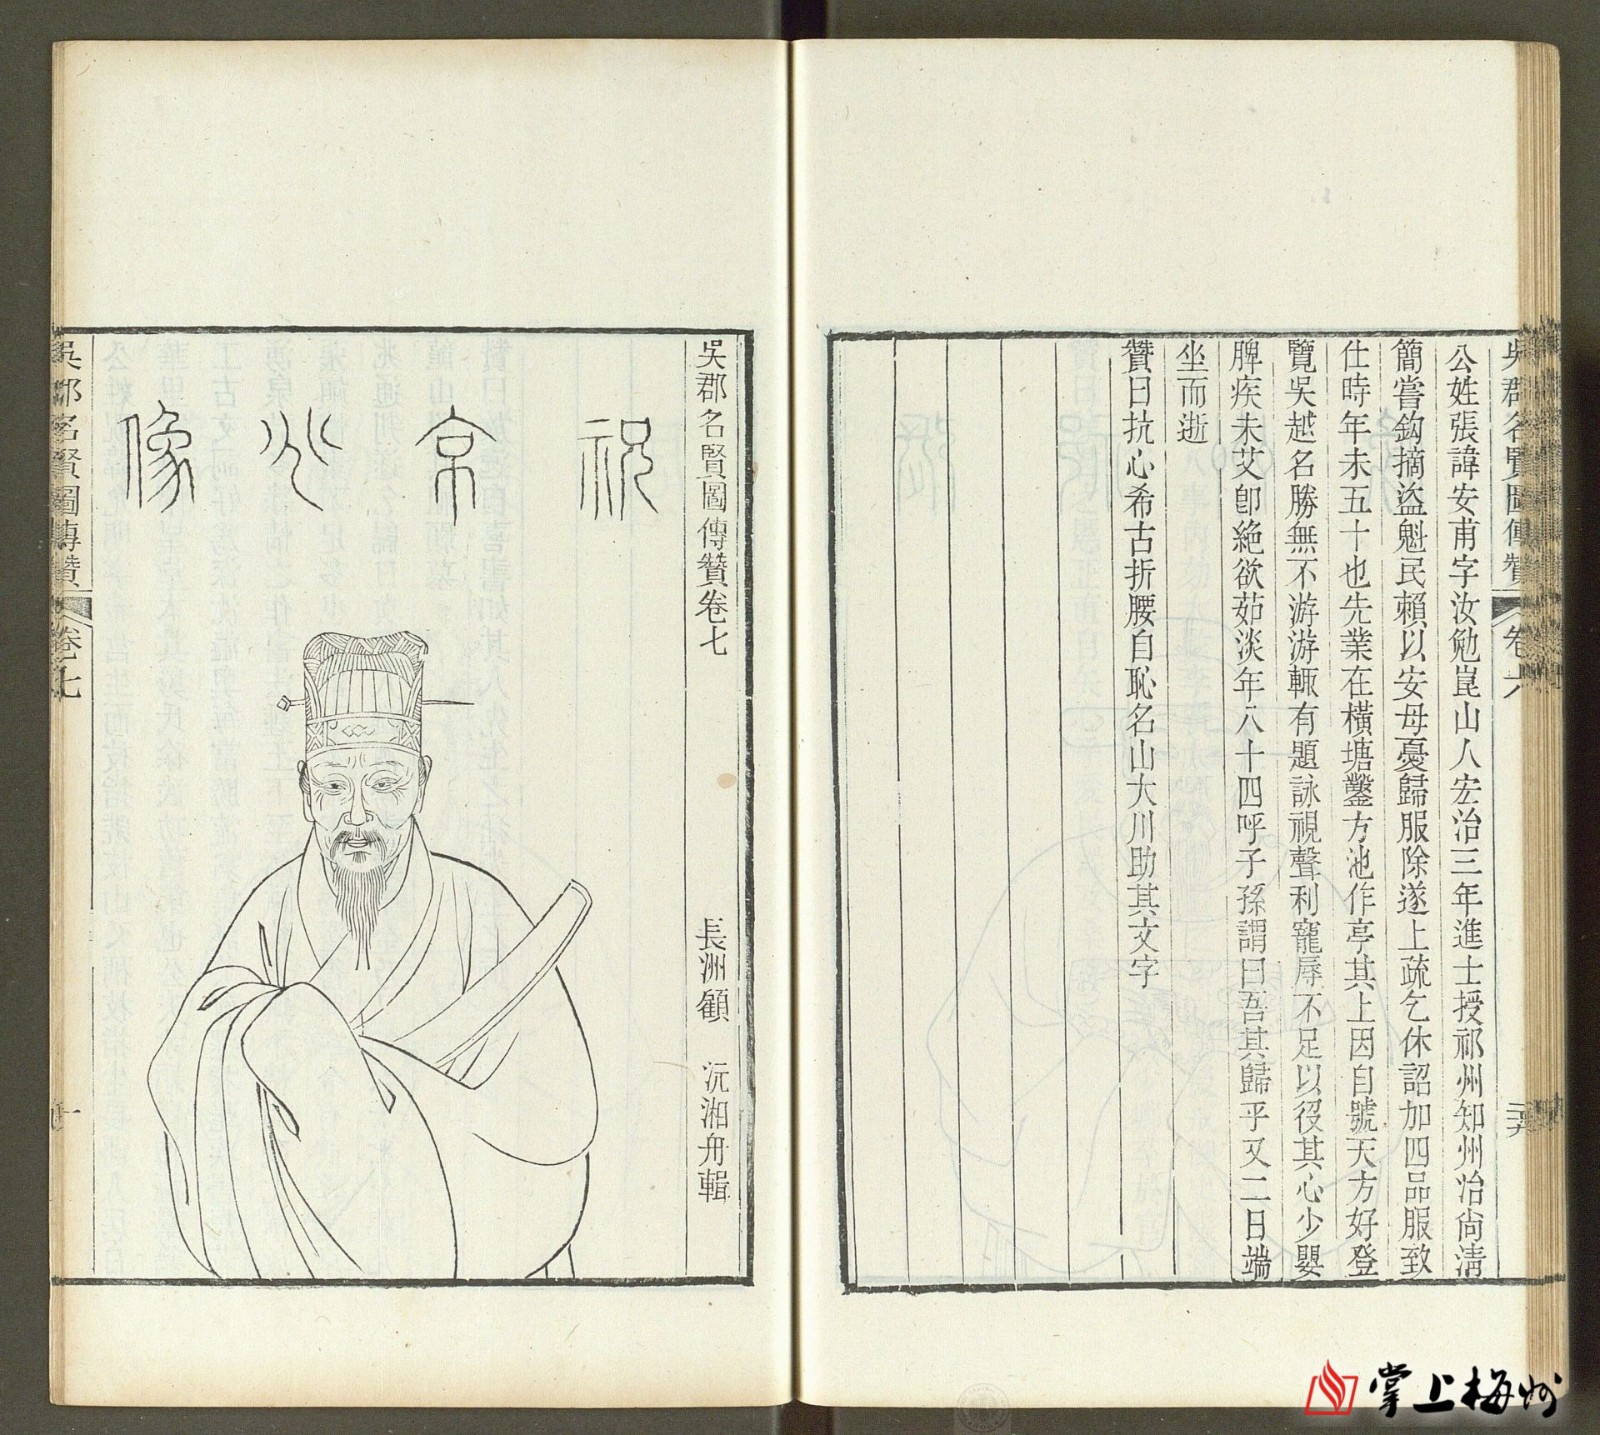 吳郡名賢圖傳贊 卷六 二六
公姓張諱安甫字汝勉崑山人宏治三年進士授祁州知州冶尙淸
簡嘗鈎摘盜魁民賴以安母憂歸服除遂上疏乞休詔加四品服致
仕時年未五十也先業在橫塘鑿方池作亭其上因自號天方好登
覽吳越名勝無不游游輒有題詠視聲利寵辱不足以役其心少嬰
脾疾未艾卽絶欲茹淡年八十四呼子孫謂曰吾其歸乎又二日端
坐而逝
贊曰抗心希古折腰自恥名山大川助其文字
吳郡名賢圖傳贊卷七
長洲顧 沅湘舟輯
祝京兆像
吳郡名賢圖傳贊 卷七 一
掌上梅州